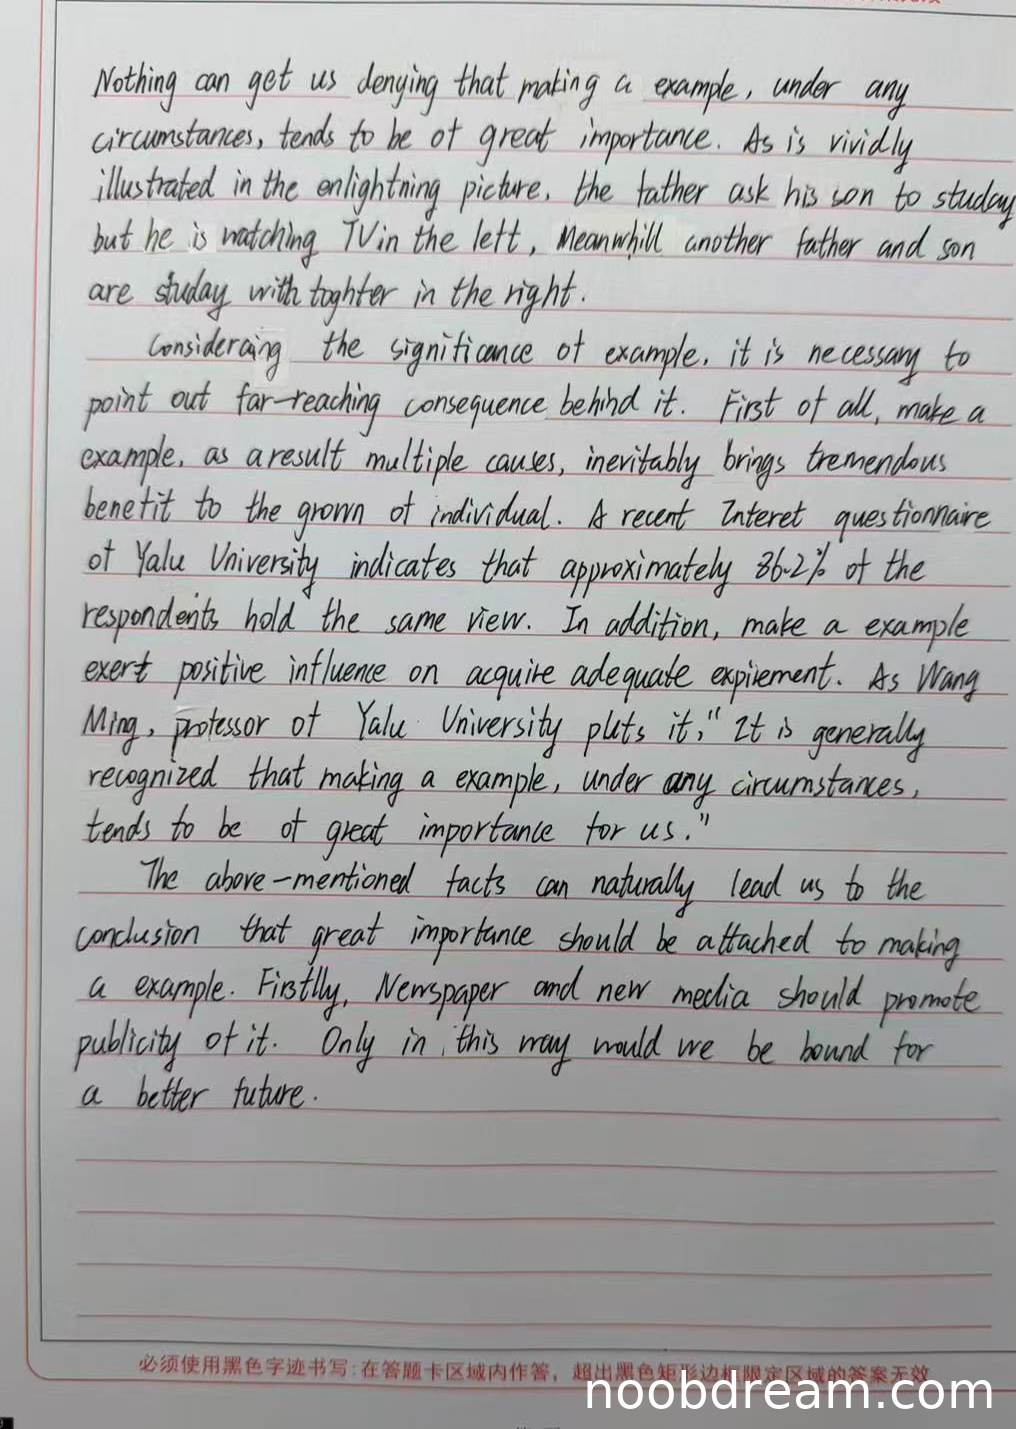 Nothing can get us denying that making a example, under any
circumstances, tends to be of great importance. As is vividly
illustrated in the enlightning picture, the father ask his son to studay
but he is watching TV in the left, Meanwhill another father and son
are studay with toghter in the right.
Consideraing the significance of example, it is necessary to
point out far-reaching consequence behind it. First of all, make a
example, as a result multiple causes, inevitably brings tremendous
benefit to the grown of individual. A recent Interet questionnaire
of Yalu University indicates that approximately 86.2% of the
respondents hold the same view. In addition, make a example
exert positive influence on acquire adequate expirement. As Wang
Ming, professor of Yalu University puts it, "It is generally
recognized that making a example, under any circumstances,
tends to be of great importance for us."
The above-mentioned facts can naturally lead us to the
conclusion that great importance should be attached to making
a example. Firstlly, Newspaper and new media should promote
publicity of it. Only in this way would we be bound for
a better future.
必须使用黑色字迹书写:在答题卡区域内作答，超出黑色矩形边框限定区域的答案无效
noobdream.com